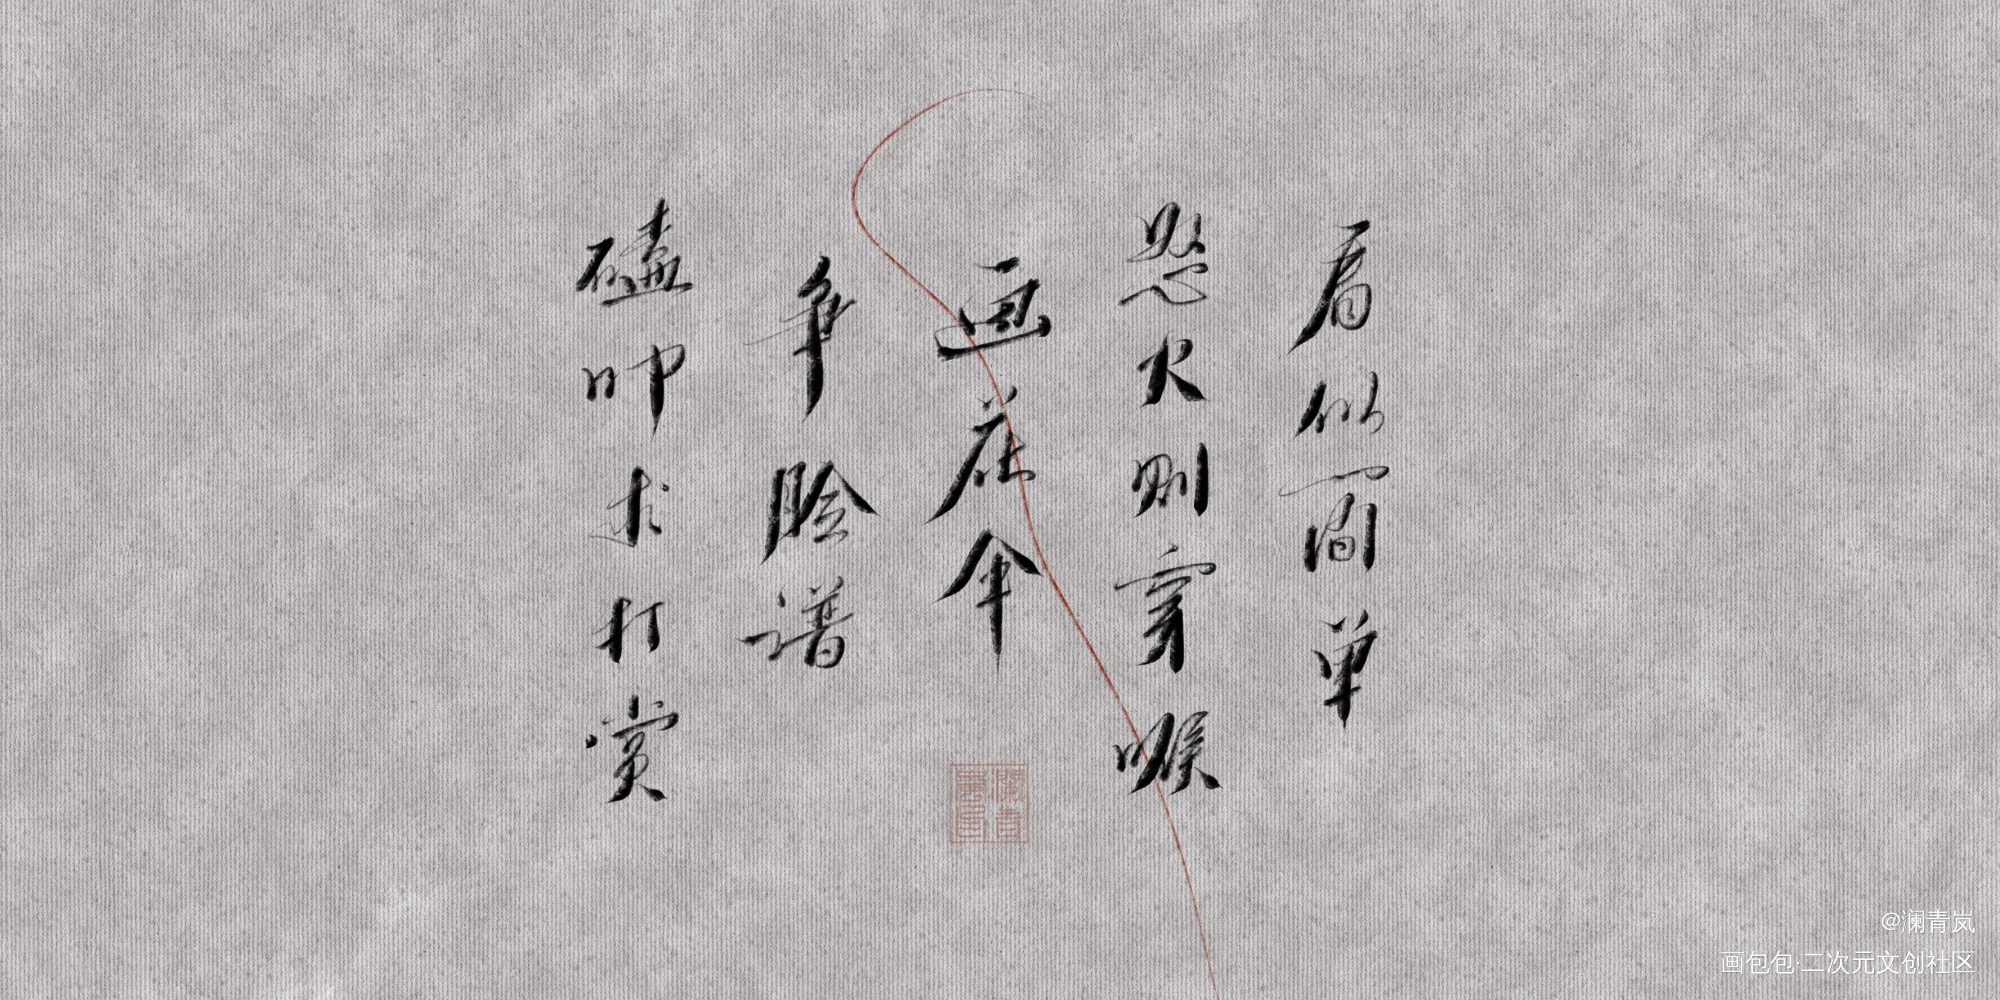 看似简单
怒火则穿喉
画花伞
争脸谱
磕叩求打赏
澜青
画印
@澜青岚
画包包·二次元文创社区